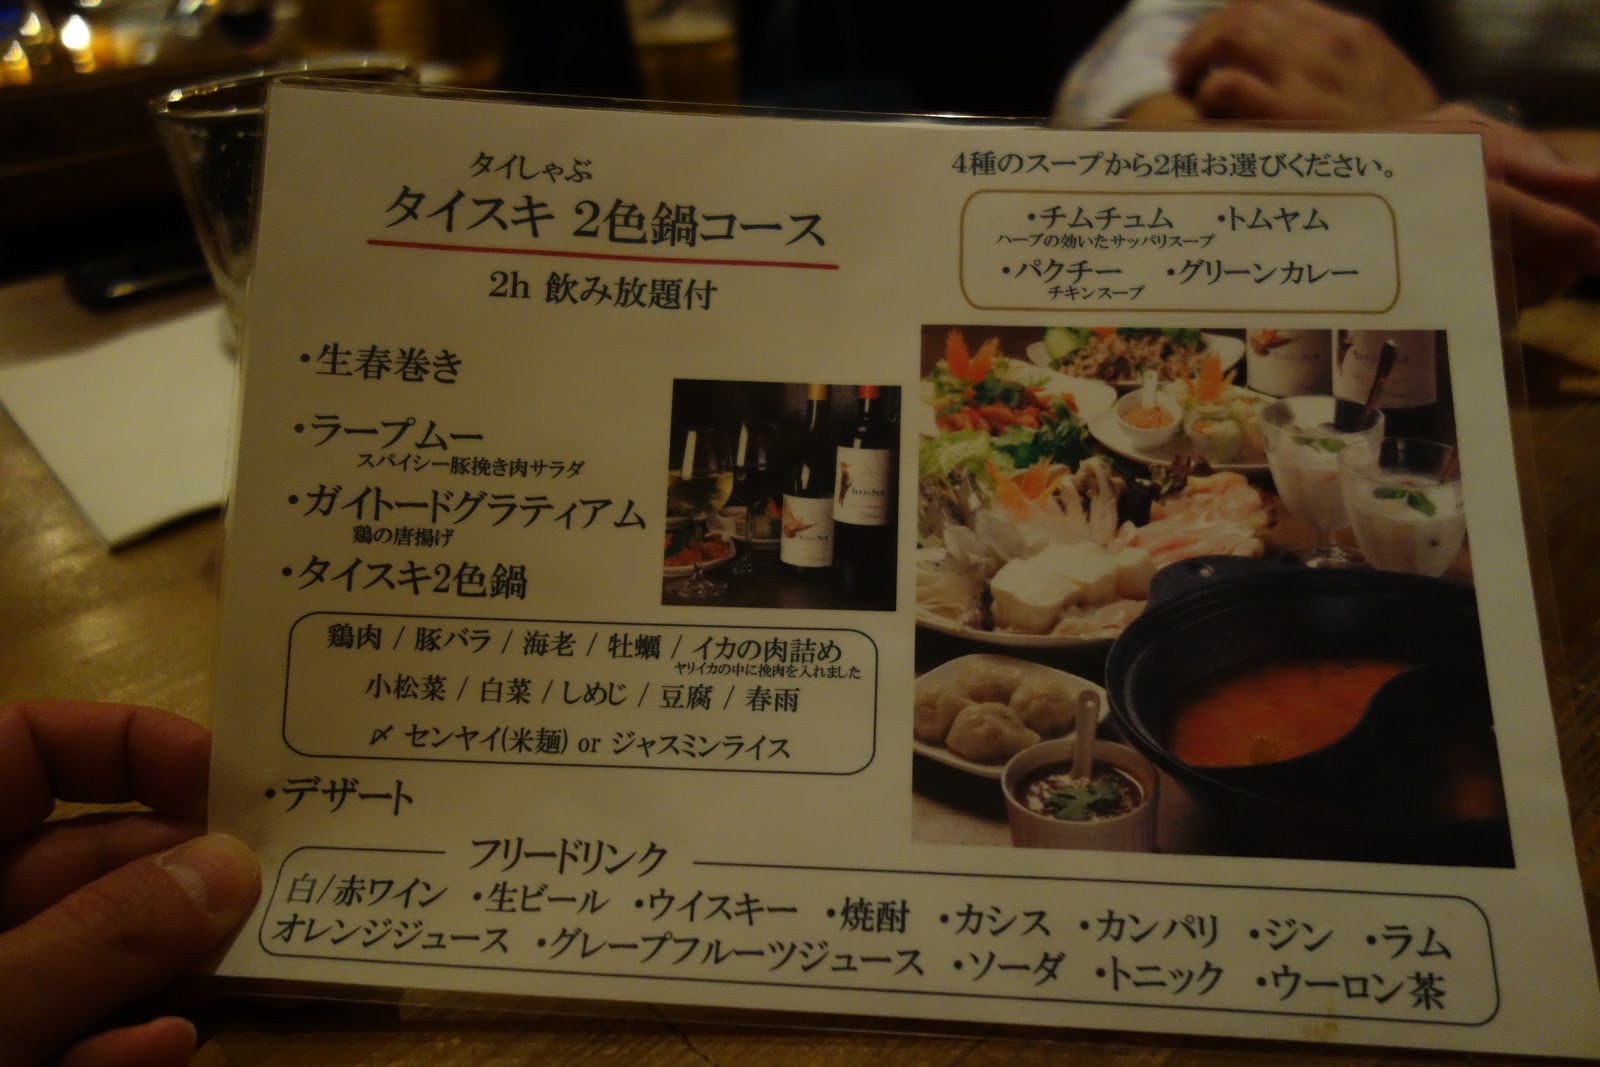 タイしゃぶ
タイスキ 2色鍋コース
2h 飲み放題付
・生春巻き
・ラープムー
スパイシー豚挽き肉サラダ
・ガイトードグラティアム
鶏の唐揚げ
・タイスキ2色鍋
鶏肉 / 豚バラ / 海老 / 牡蠣 / イカの肉詰め
ヤリイカの中に挽肉を入れました
小松菜 / 白菜 / しめじ / 豆腐 / 春雨
〆 センヤイ(米麺) or ジャスミンライス
・デザート
4種のスープから2種お選びください。
・チムチュム ・トムヤム
ハーブの効いたサッパリスープ
・パクチー ・グリーンカレー
チキンスープ
フリードリンク
白/赤ワイン ・生ビール ・ウイスキー ・焼酎 ・カシス ・カンパリ ・ジン ・ラム
オレンジジュース ・グレープフルーツジュース ・ソーダ ・トニック ・ウーロン茶